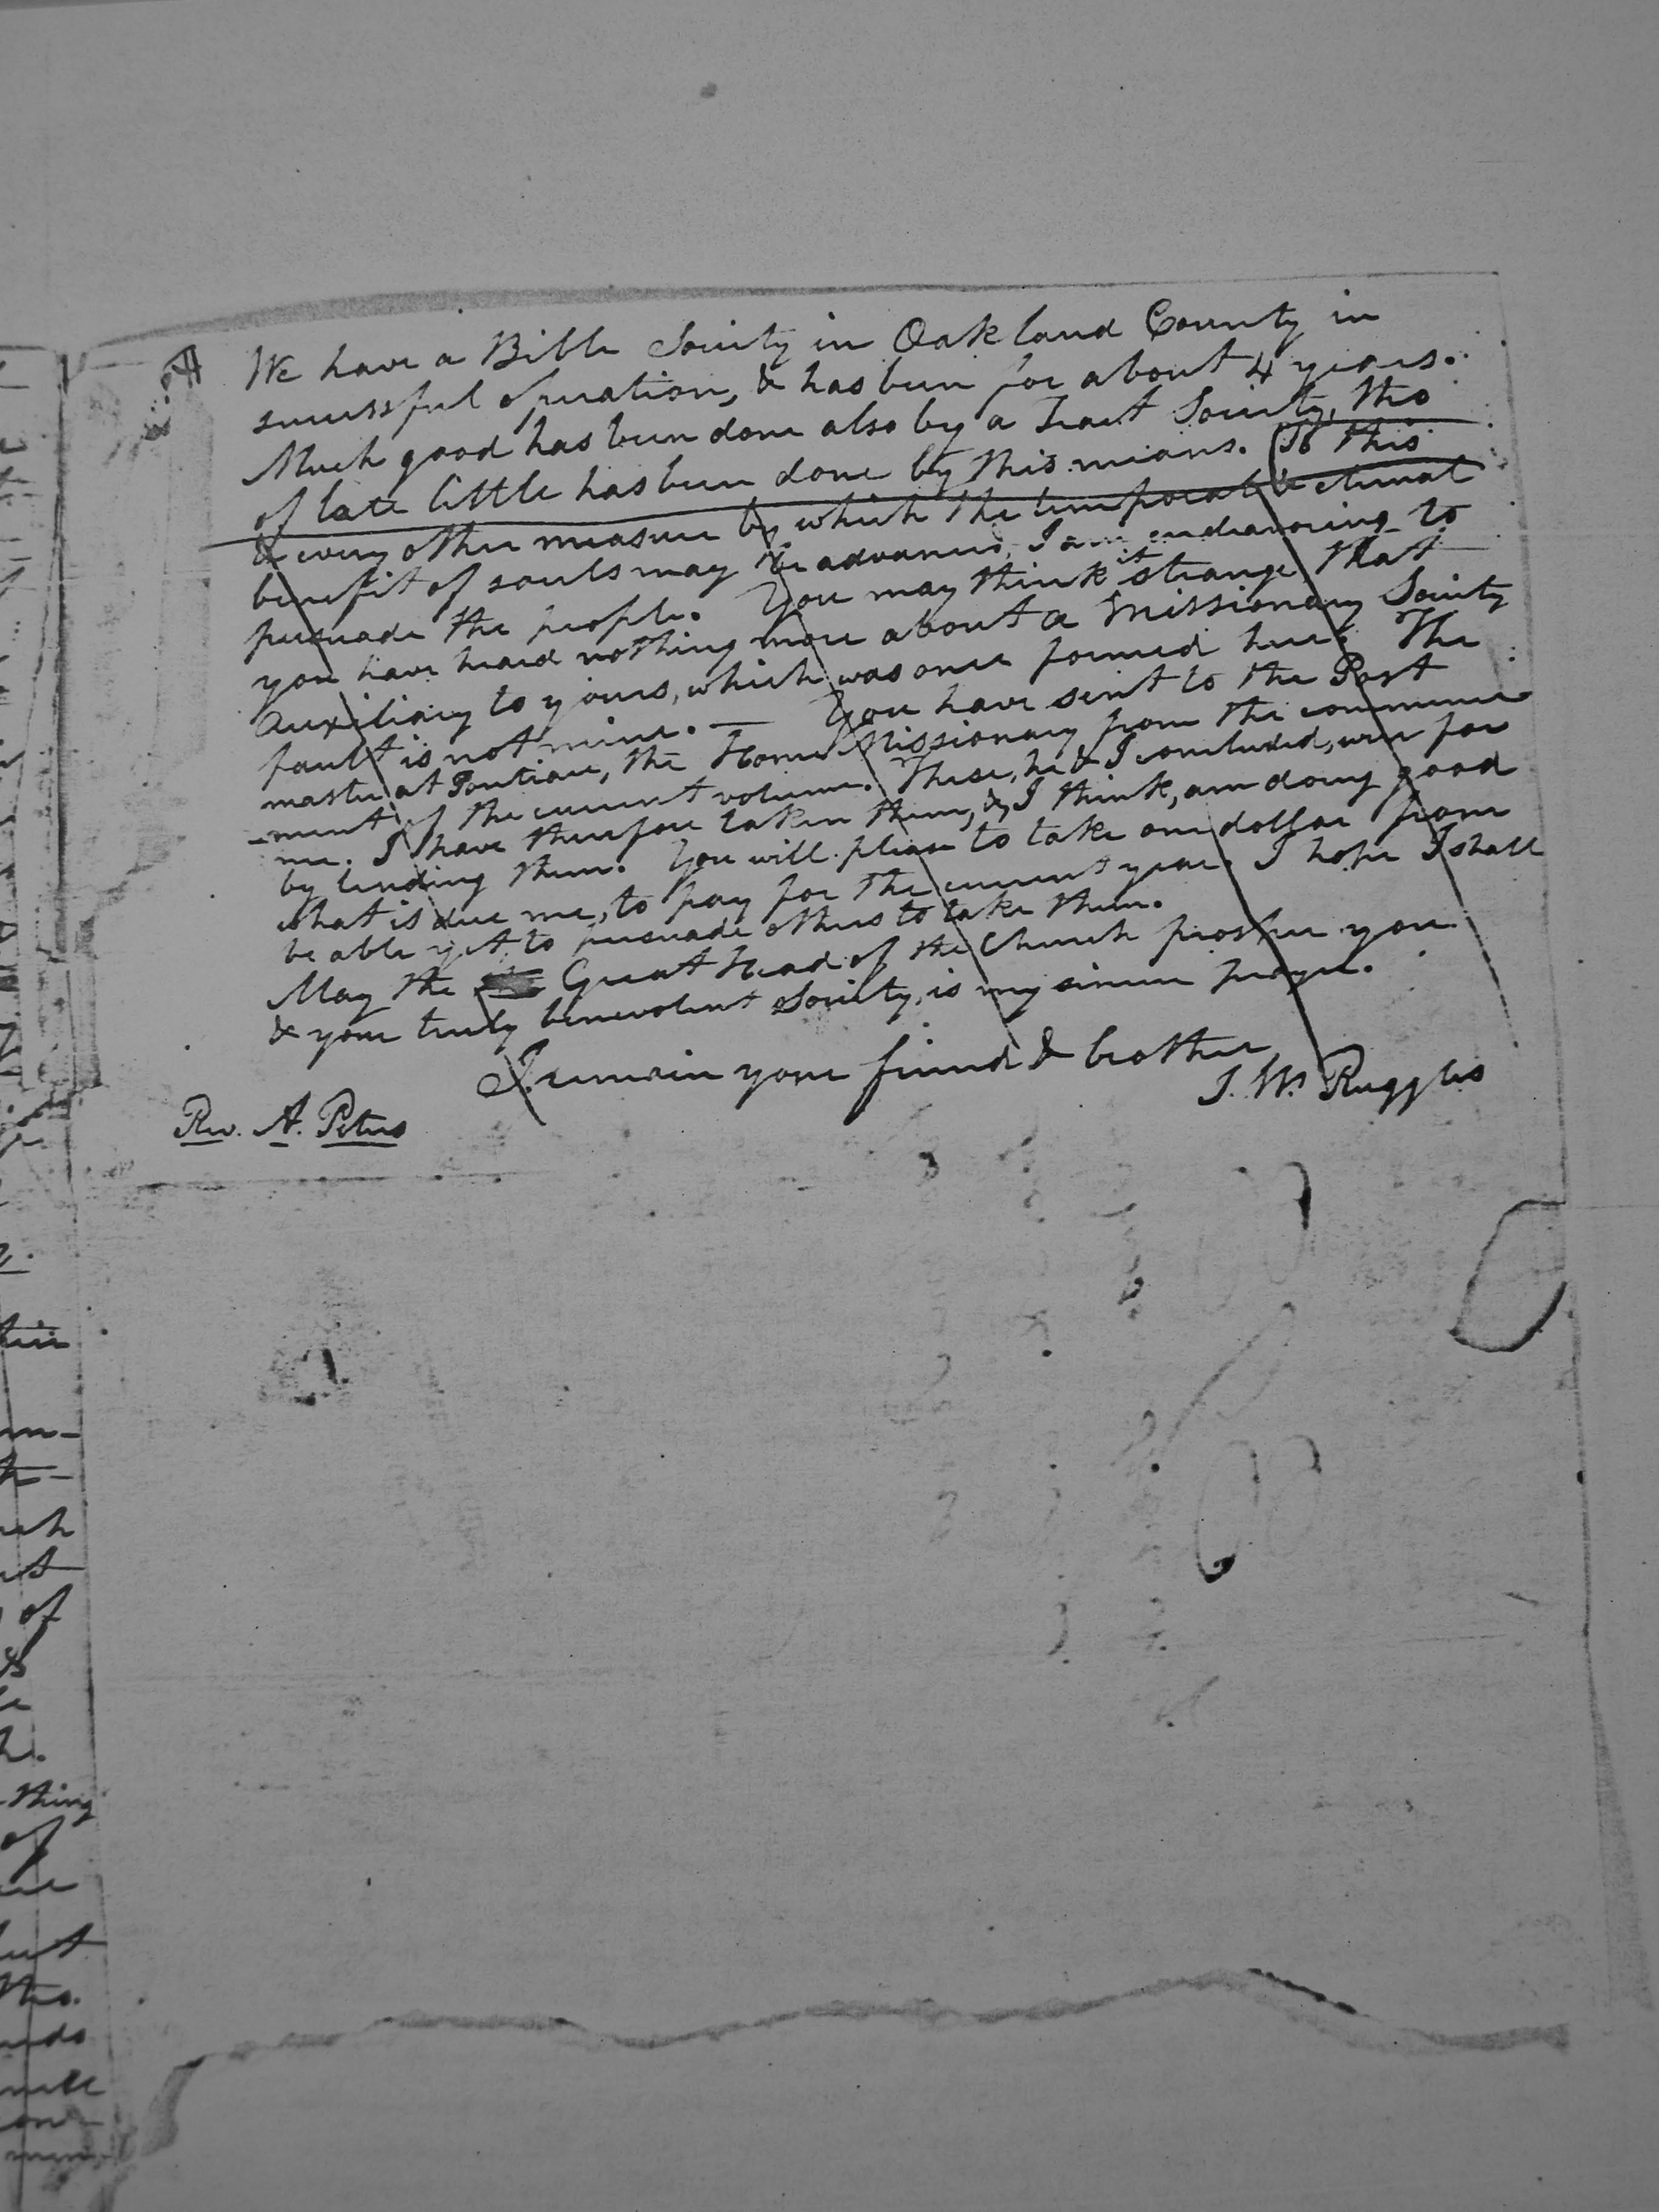 We have a Bible Society in Oakland County in
successful operation, & has been for about 4 years.
Much good has been done also by a Tract Society, tho
of late little has been done by this means. (To this
& every other measure by which the temporal & eternal
benefit of souls may be advanced, I am endeavoring to
persuade the people. You may think it strange that
you have heard nothing more about a Missionary Society
Auxiliary to yours, which was once formed here. The
fault is not mine. — You have sent to the Post
master at Pontiac, the Home Missionary from the commence
-ment of the current volume. These, he & I concluded, were for
me. I have therefore taken them, & I think, am doing good
by lending them. You will please to take one dollar from
what is due me, to pay for the current year. I hope I shall
be able yet to persuade others to take them.
May the Great Head of the Church prosper you
& your truly benevolent Society, is my sincere prayer.
I remain your friend & brother
I. W. Ruggles
Rev. A. Peters
m-
of
h.
thing
of